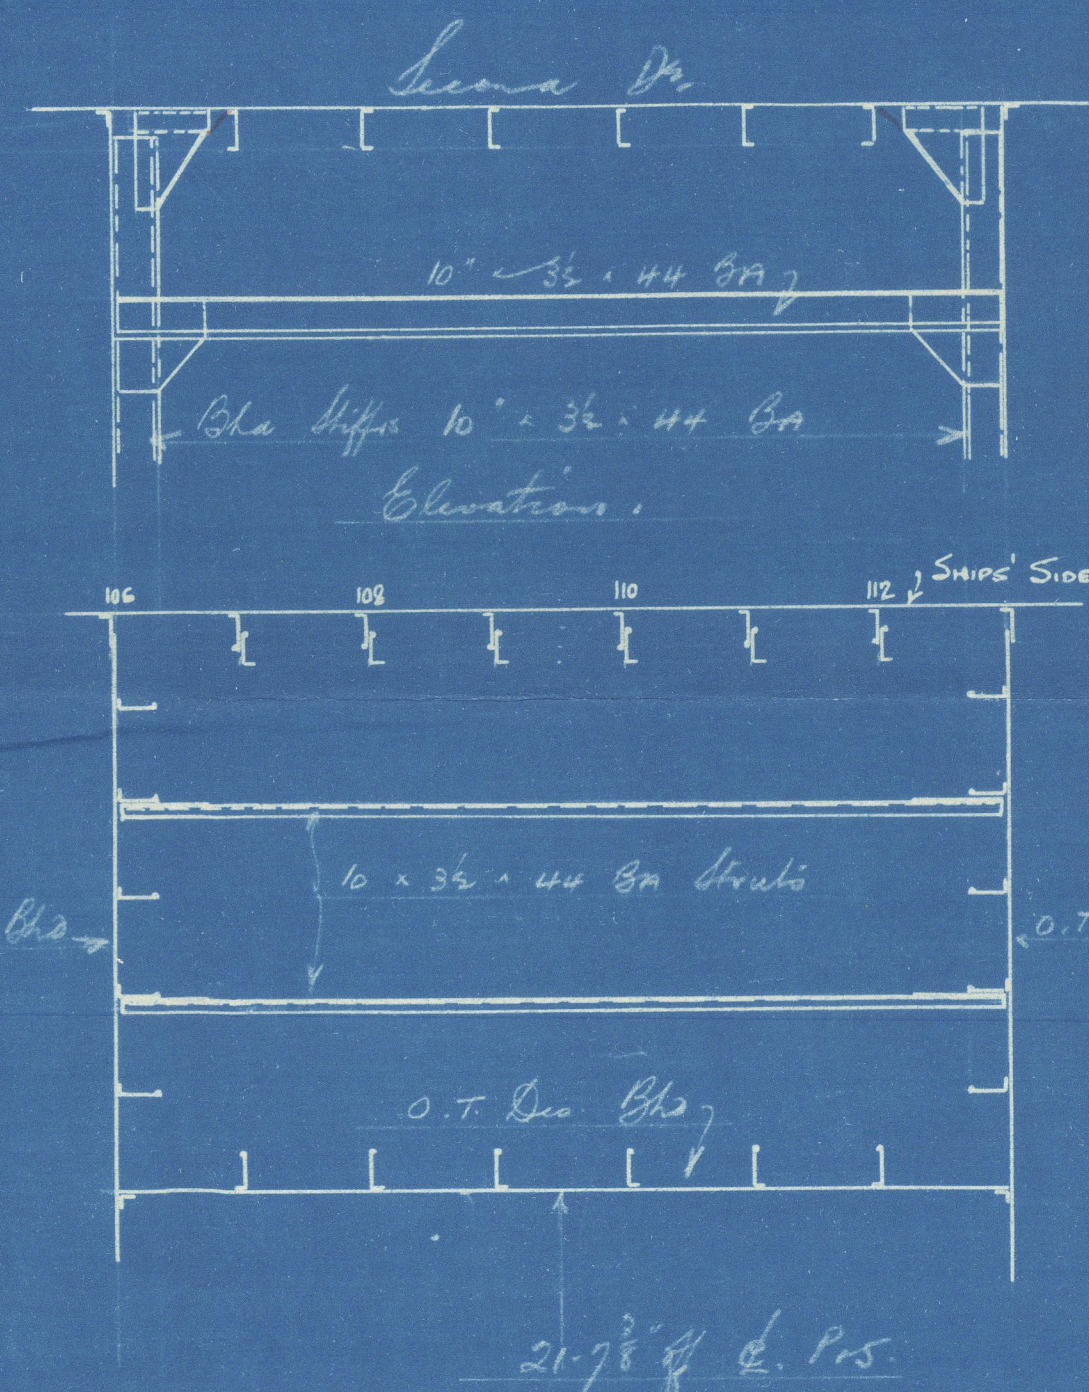 Second Dk.
10" × 3½ × 44 BA
Bhd Stiffrs 10" × 3½ × 44 BA
Elevation.
106 108 110 112 SHIPS' SIDE
10 × 3½ × 44 BA Struts
Bhd
O.T
O.T. Deo. Bhd
21-7⅜" off ₵. P & S.